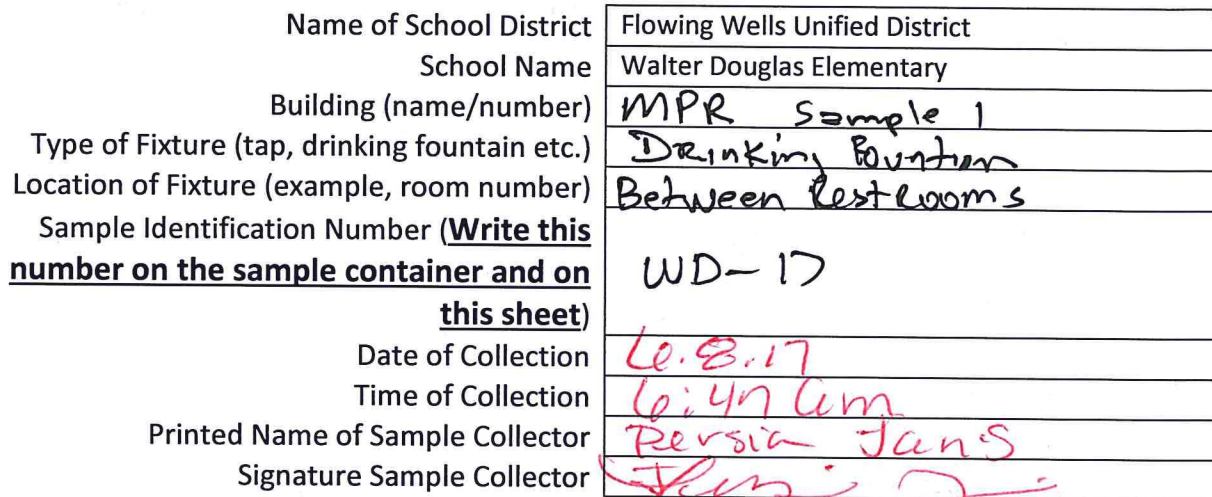 Name of School District Flowing Wells Unified District
School Name Walter Douglas Elementary
Building (name/number) MPR Sample 1
Type of Fixture (tap, drinking fountain etc.) Drinking Fountion
Location of Fixture (example, room number) Between Restrooms
Sample Identification Number (Write this
number on the sample container and on
this sheet)
WD-17
Date of Collection 6.8.17
Time of Collection 6:47 am
Printed Name of Sample Collector Persia Janis
Signature Sample Collector